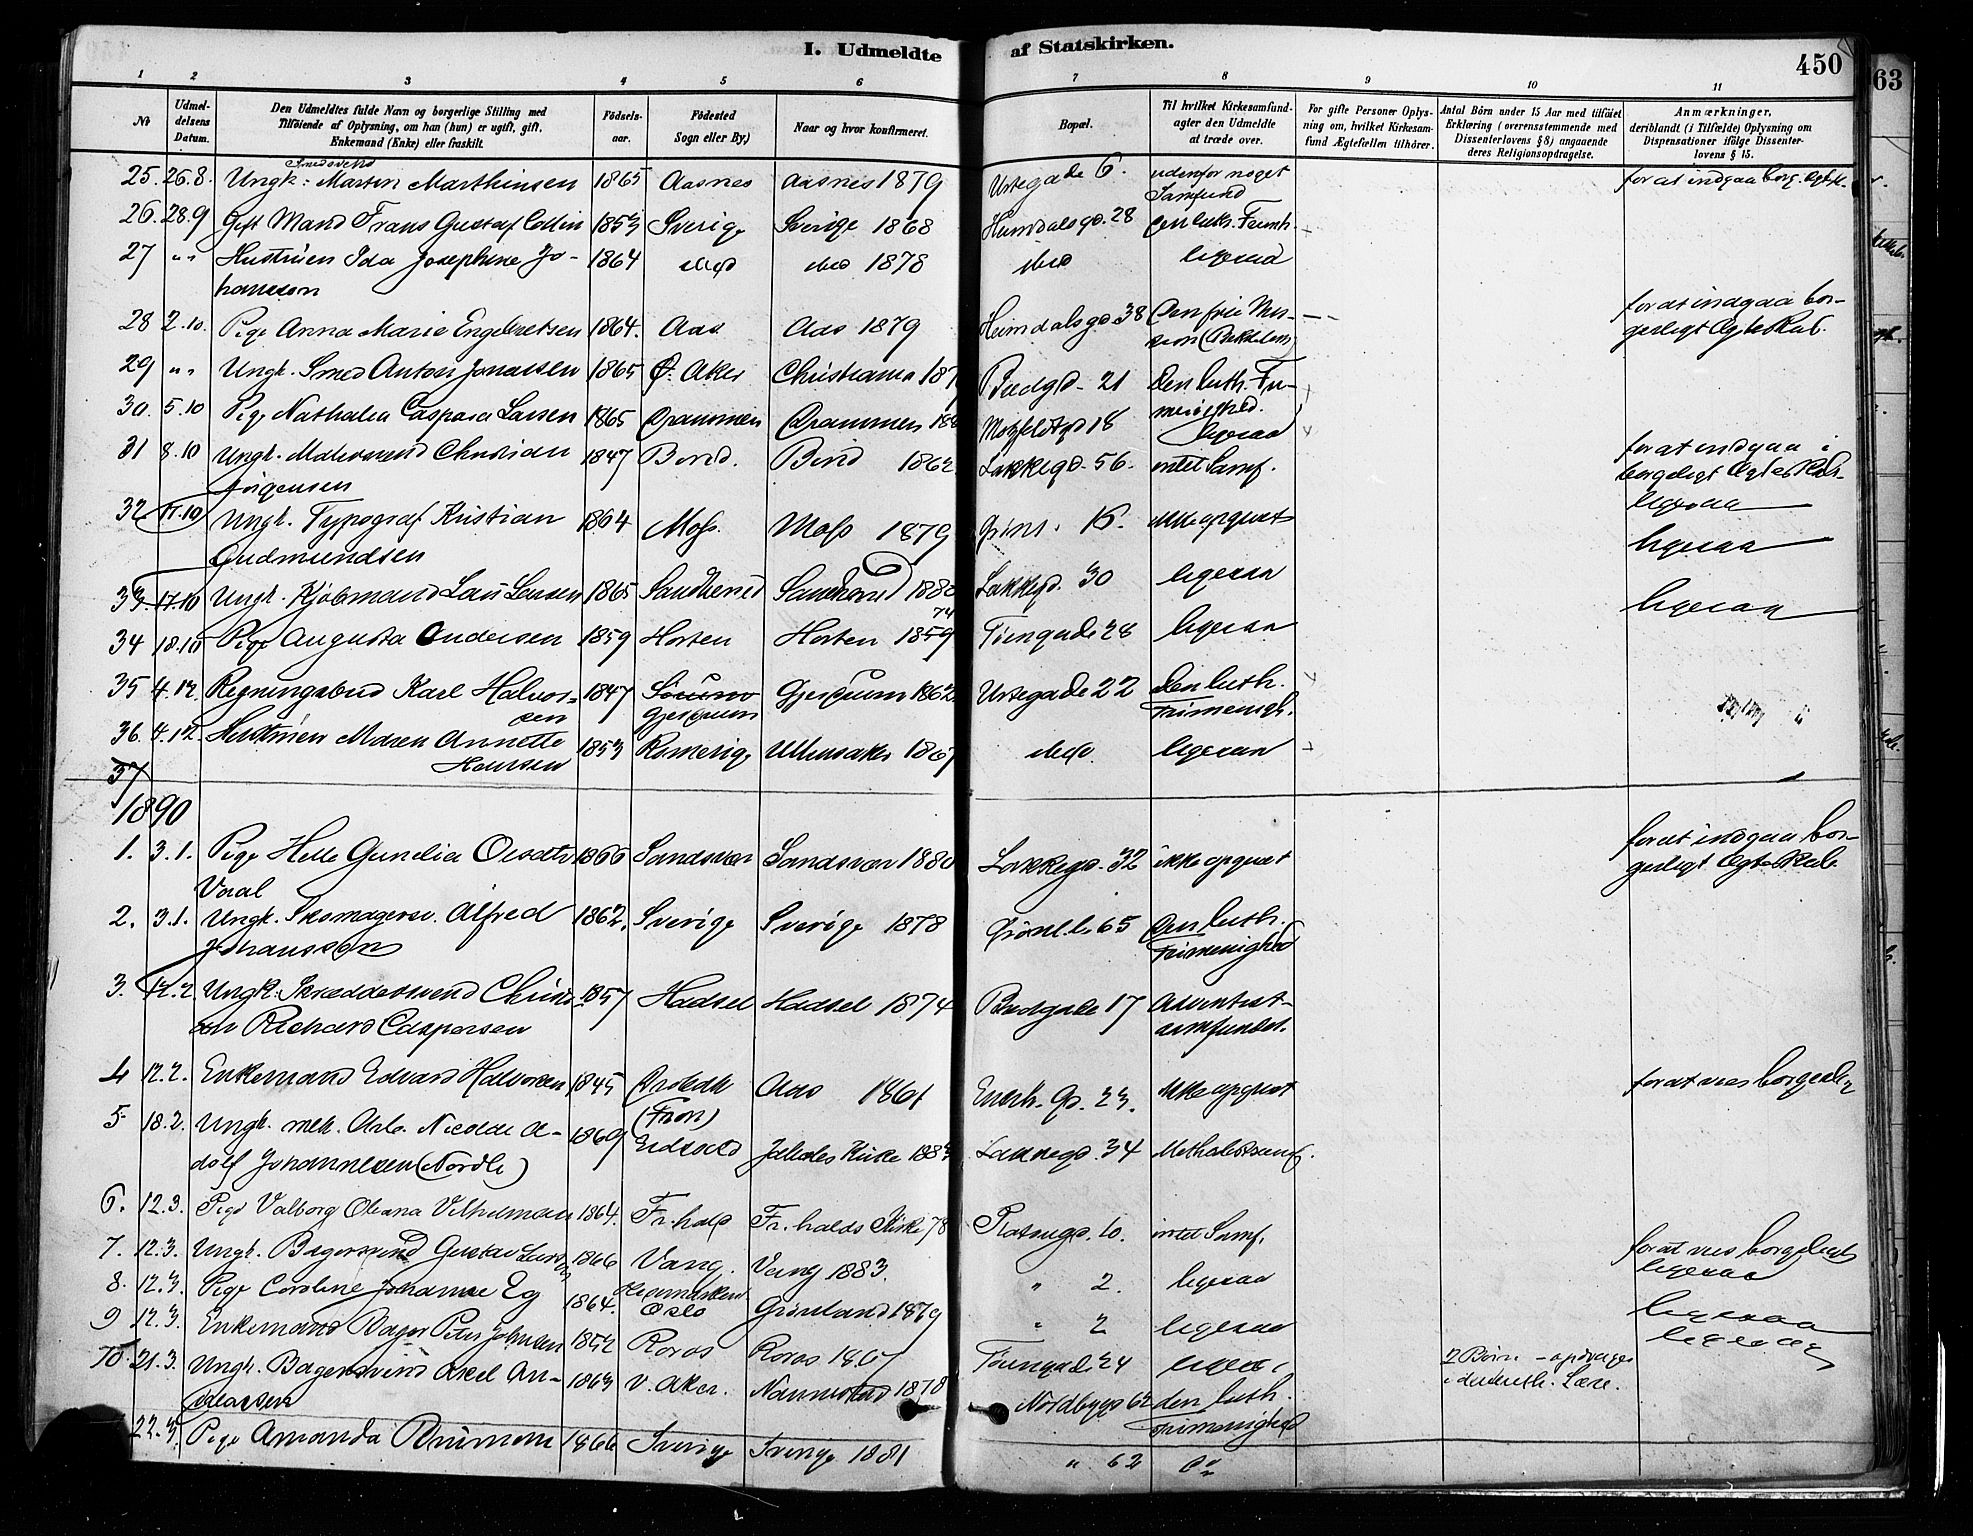 I. Udmeldte af Statskirken. 450
63
1 2 3 4 5 6 7 8 9 10 11
No
Udmeldelsens Datum.
Den Udmeldtes fulde Navn og borgerlige Stilling med
Tilføiende af Oplysning, om han (hun) er ugift, gift,
Enkemand (Enke) eller fraskilt.
Fødselsaar.
Fødested
Sogn eller By.)
Naar og hvor konfirmeret.
Bopæl.
Til hvilket Kirkesamfund-
agter den Udmeldte
at træde over.
For gifte Personer Oplys-
ning om, hvilket Kirkesam-
fund Ægtefællen tilhører.
Antal Børn under 15 Aar med tilføiet
Erklæring (overensstemmende med
Dissenterlovens § 8) angaaende
deres Religionsopdragelse.
Anmærkninger,
deriblandt (i Tilfælde) Oplysning om
Dispensationer ifølge Dissenter-
lovens § 15.
Smedsvend
25. 26.8. Ungk: Martin Marthinsen 1865 Aasnes Aasnes 1879 Urtegade 6. udenfor noget Samfund for at indgaa borg. Ægtesk.
26. 28.9 Gift Mand Frans Gustaf Collin 1853 Sverige Sverige 1868 Heimdalsgd. 28 Den luth. Frimh.
27 " " Hustruen Ida Josephine Jo-
hansson 1864 ibid ibid 1878 ibid ligesaa
28 2.10. Pige Anna Marie Engebretsen 1864. Aas Aas 1879 Heimdalsgd. 38 Den frie Mis-
sion for at indgaa bor-
gerligt Ægteskab.
29 " " Ungk. Smed Anton Jonassen 1865 Ø. Aker Christiania 187 Bredgd. 21 Den luth. Fri-
menighed.
30. 5.10 Pige Nathalia Caspara Larsen 1865 Drammen Drammen 188 Motzfeldtgd 18 ligesaa
31 8.10 Ungk. Malersvend Christian
Jørgensen 1847 Lakkegd. 56. intet Samf. for at indgaa i
borgerligt Ægteskab.
32 11.10 Ungk. Typograf Kristian
Gudmundsen 1864 Moss. Moss 1879 Grønl. 15. ikke opgivet ligesaa
33 17.10 Ungk. Kjøbmand Lars Larsen 1865 Sandherred Sandherred 1880 Lakkegd. 30 ligesaa ligesaa
34 18.10 Pige Augusta Andersen 1859 Horten Horten 1859 74 Tøiengade 28 ligesaa ligesaa
35 4.12. Regningsbud Karl Halvor-
sen 1847 Gjerdrum Gjerdrum 1862 Urtegade 22 Den luth.
Frimenigh.
36. 4.12. Hustruen Maren Annette
Hansen 1853 Romerige Ullensaker 1867 ibid. ligesaa
37
1890
1. 3.1. Pige Helle Gunelia Olsdtr
Voral 1866 Sandsvær Sandsvær 1880 Lakkegd. 32 ikke opgivet for at indgaa bor-
gerligt Ægteskab
2. 3.1. Ungk. Skomagersv. Alfred
Johansson 1862. Sverige Sverige 1878 Grønl.l. 65 Den luth.
Frimenighed
3. 12.2. Ungk. Skræddersvend Christi-
an Richard Caspersen 1857 Hadsel Hadsel 1874 Bredgade 17 Adventist-
samfundet.
4 12.2. Enkemand Edvard Halvorsen 1845 Drøbak
(Fron) Aas 1861 Enerh. G. 23. ikke opgivet for at vies borgerlig
5 18.2. Ungk. mek. Arb. Nicolai A-
dolf Johannesen (Nordli) 1869 Eidsvold Jakobs Kirke 1883 Lakkegd. 34 Methodistsamf.
6. 12.3. Pige Valborg Oleana Vilhelmsen 1864. Fr.hald Fr.halds Kirke 78 Platougd. 10. intet Samf. for at vies borgerligt
7. 12.3. Ungk. Bagersvend Gustav Larsen 1866 Vang.
Hedemarken Vang 1883. " 2. ligesaa ligesaa
8. 12.3. Pige Caroline Johanne Eg 1864. Oslo Grønland 1879 " 2 ligesaa ligesaa
9 12.3. Enkemand Bager Peter Johnsen 1852 Roros Roros 1867 Tøiengade 24 ligesaa 2 Børn - opdrages
i den luth. Lære. ligesaa
10. 21.3. Ungk. Bagersvend Axel An-
dreassen 1863 V. Aker. Nannestad 1878 Nordbygd 62 den luth.
Frimenighed
22.3. Pige Amanda 1866 Sverige Sverige 1881 " 62 do